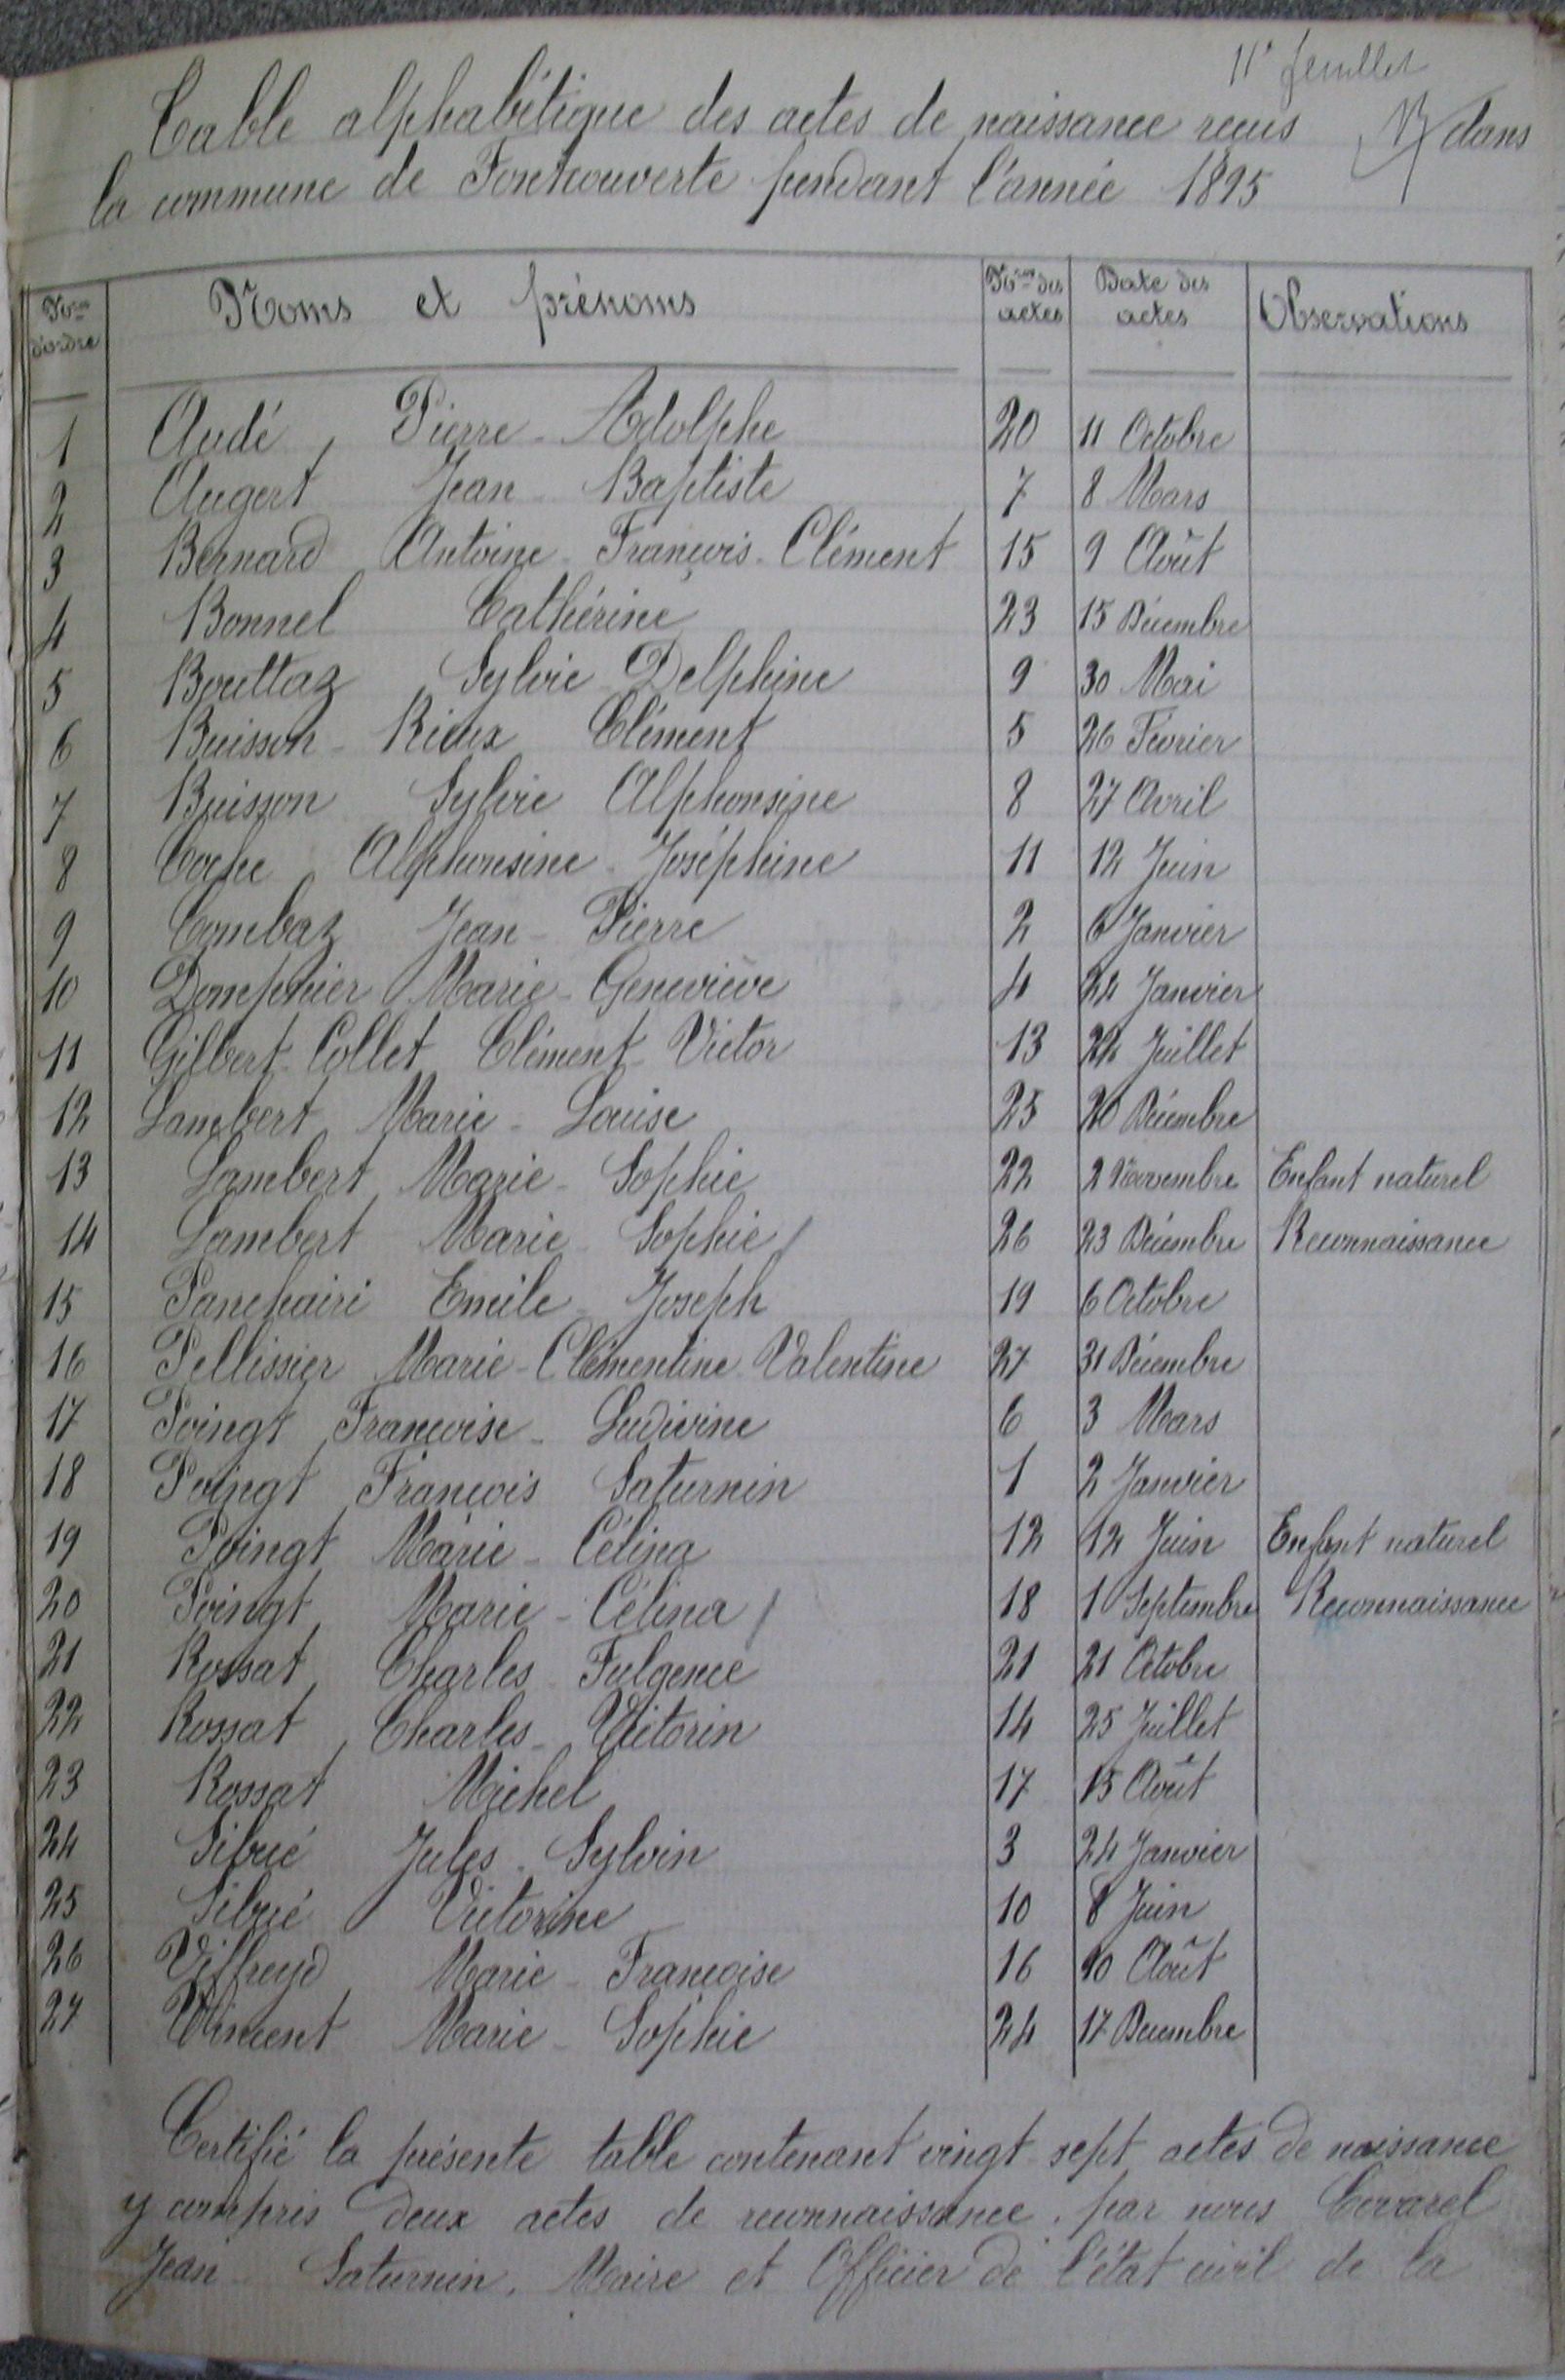 11e feuillet
Table alphabétique des actes de naissance reçus dans
la commune de Fontcouverte pendant l'année 1895
Nos d'ordre Noms et prénoms Nos des actes Date des actes Observations
1 Audé, Pierre-Adolphe 20 11 Octobre
2 Augert Jean-Baptiste 7 8 Mars
3 Bernard Antoine-François-Clément 15 9 Août
4 Bonnel Cathérine 23 15 Décembre
5 Bouttaz Sylvie-Delphine 9 30 Mai
6 Buisson-Rieux Clément 5 26 Février
7 Buisson Sylvie Alphonsine 8 27 Avril
8 Coche Alphonsine-Joséphine 11 12 Juin
9 Combaz Jean-Pierre 2 6 Janvier
10 Domphier Marie-Geneviève 4 24 Janvier
11 Gilbert-Collet Clément-Victor 13 24 Juillet
12 Lambert Marie-Louise 25 20 Décembre
13 Lambert Marie-Sophie 22 2 Novembre Enfant naturel
14 Lambert Marie-Sophie 26 23 Décembre Reconnaissance
15 Panchairi Emile-Joseph 19 6 Octobre
16 Pellissier Marie-Clémentine-Valentine 27 31 Décembre
17 Poingt Françoise-Ludivine 6 3 Mars
18 Poingt François Saturnin 1 2 Janvier
19 Poingt Marie-Célina 12 12 Juin Enfant naturel
20 Poingt Marie-Célina 18 1 Septembre Reconnaissance
21 Rossat Charles-Fulgence 21 21 Octobre
22 Rossat Charles-Victorin 14 25 Juillet
23 Rossat Michel 17 15 Août
24 Sibué Jules-Sylvin 3 24 Janvier
25 Sibué Victorine 10 8 Juin
26 Viffreyd Marie-Françoise 16 10 Août
27 Vincent Marie-Sophie 24 17 Décembre
Certifié la présente table contenant vingt-sept actes de naissance
y compris deux actes de reconnaissance, par nous Covarel
Jean-Saturnin, Maire et Officier de l'état civil de la